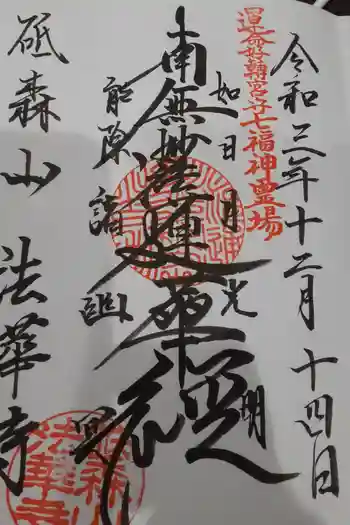 令和三年十二月十四日
運命好轉宮守七福神霊場
如日月光明
南無妙法蓮華経
能除諸幽冥
砥森山 法華寺